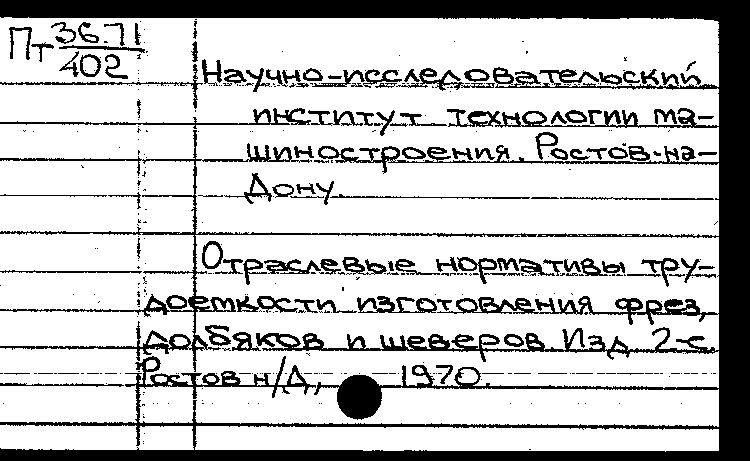 Пт 36.71
402
Научно-исследовательский
институт технологии ма-
шиностроения. Ростов-на-
Дону.
Отраслевые нормативы тру-
доемкости изготовления фрез,
долбяков и шеверов. Изд 2-е.
Ростов н/Д, 1970.